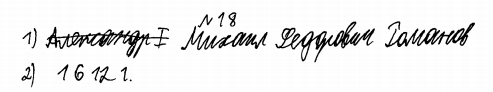 №18
1) Александр I Михаил Федорович Романов
2) 1612 г.